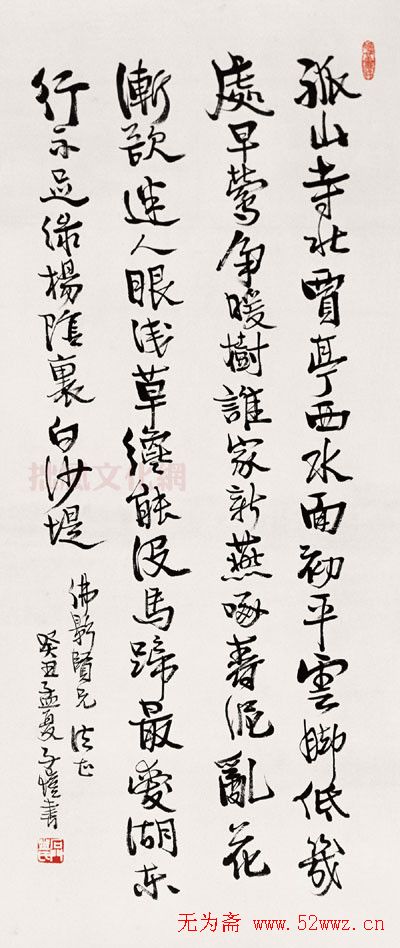 孤山寺北賈亭西水面初平雲脚低幾
處早鶯争暖樹誰家新燕啄春泥亂花
漸欲迷人眼浅草纔能没馬蹄最愛湖东
行不足緑楊陰裏白沙堤
佛影賢兄法正
癸丑孟夏子愷書
拙風文化網
无为斋 www.52wwz.cn